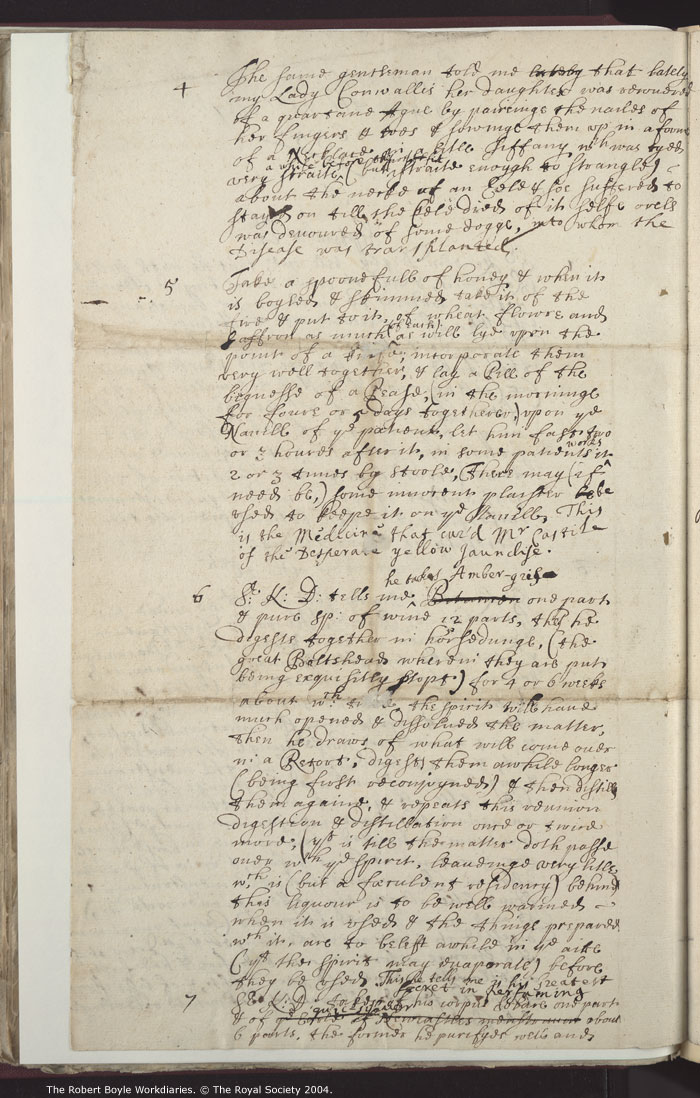 4
The same gentleman told me lateby that lately
my Lady Cornwallis her daughter was recovered
of a quartane Ague by pareinge the nailes of
her fingers & toes & sowinge them up in a forme
of a Necklace in a little Tiffany wch was tyed
a while before the fitt
very straite (but not straite enough to strangle)
about the necke of an Eele & soe suffered to
stay on till the Eele died of it selfe or ells
was devoured of some dogge, into whom the
Disease was transplanted.
5
Take a spoonefull of honey & when it
is boyled & skimmed take it of the
fire & put to it, of wheat flowre and
of each
Saffron as much as will lye upon the
point of a knife; incorporate them
very well together, & lay a Pill of the
bignesse of a Pease, (in the morninge
for foure or 5 days together) upon ye
Navill of ye patient, let him fast two
or 3 houres after it, in some patients it
works
2 or 3 times by stoole, There may (if
need be,) some innocent plaister be
used to keepe it on ye Navill. This
is the Medicine that cur'd Mr Castile
of the desperate yellow Jaundise.
6
he takes Amber-grise
Sr. K: D: tells me one part
& pure sp: of wine 12 parts, this he
digests together in horsedunge, (the
great Boltshead wherein they are put
being exquisitly stopt) for 4 or 6 weeks
about wch time the spirit will have
much opened & dissolved the matter,
then he draws of what will come over
in a Retort; digests them awhile longer
(being first reconjoyned) & then distills
them againe, & repeats this reunion
digestion & distillation once or twice
more, (yt is till the matter doth passe
over wth ye spirit, leaveinge very little
wch is (but a fæculent residency) behind
this liquour is to be well warmed
when it is used & the things prepared
wth it, are to be left awhile in ye aire
(yt the spirit may evaporate) before
they be used. This he tells me is his greatest
secret in perfuming
7
Sr. K: D: his one part
& of about
6 parts, the former he purifyes well and
The Robert Boyle Workdiaries. © The Royal Society 2004.